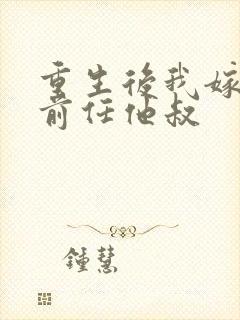 重生後我嫁
前任他叔
鍾慧